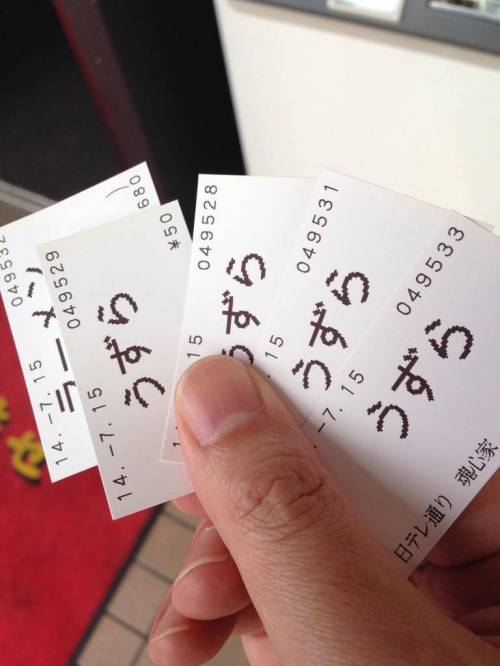 049532
680
ラーメン
14.-7.15
049529
¥50
うずら
14.-7.15
049528
うずら
15
049531
うずら
15
049533
うずら
7.15
日テレ通り 魂心家
せ